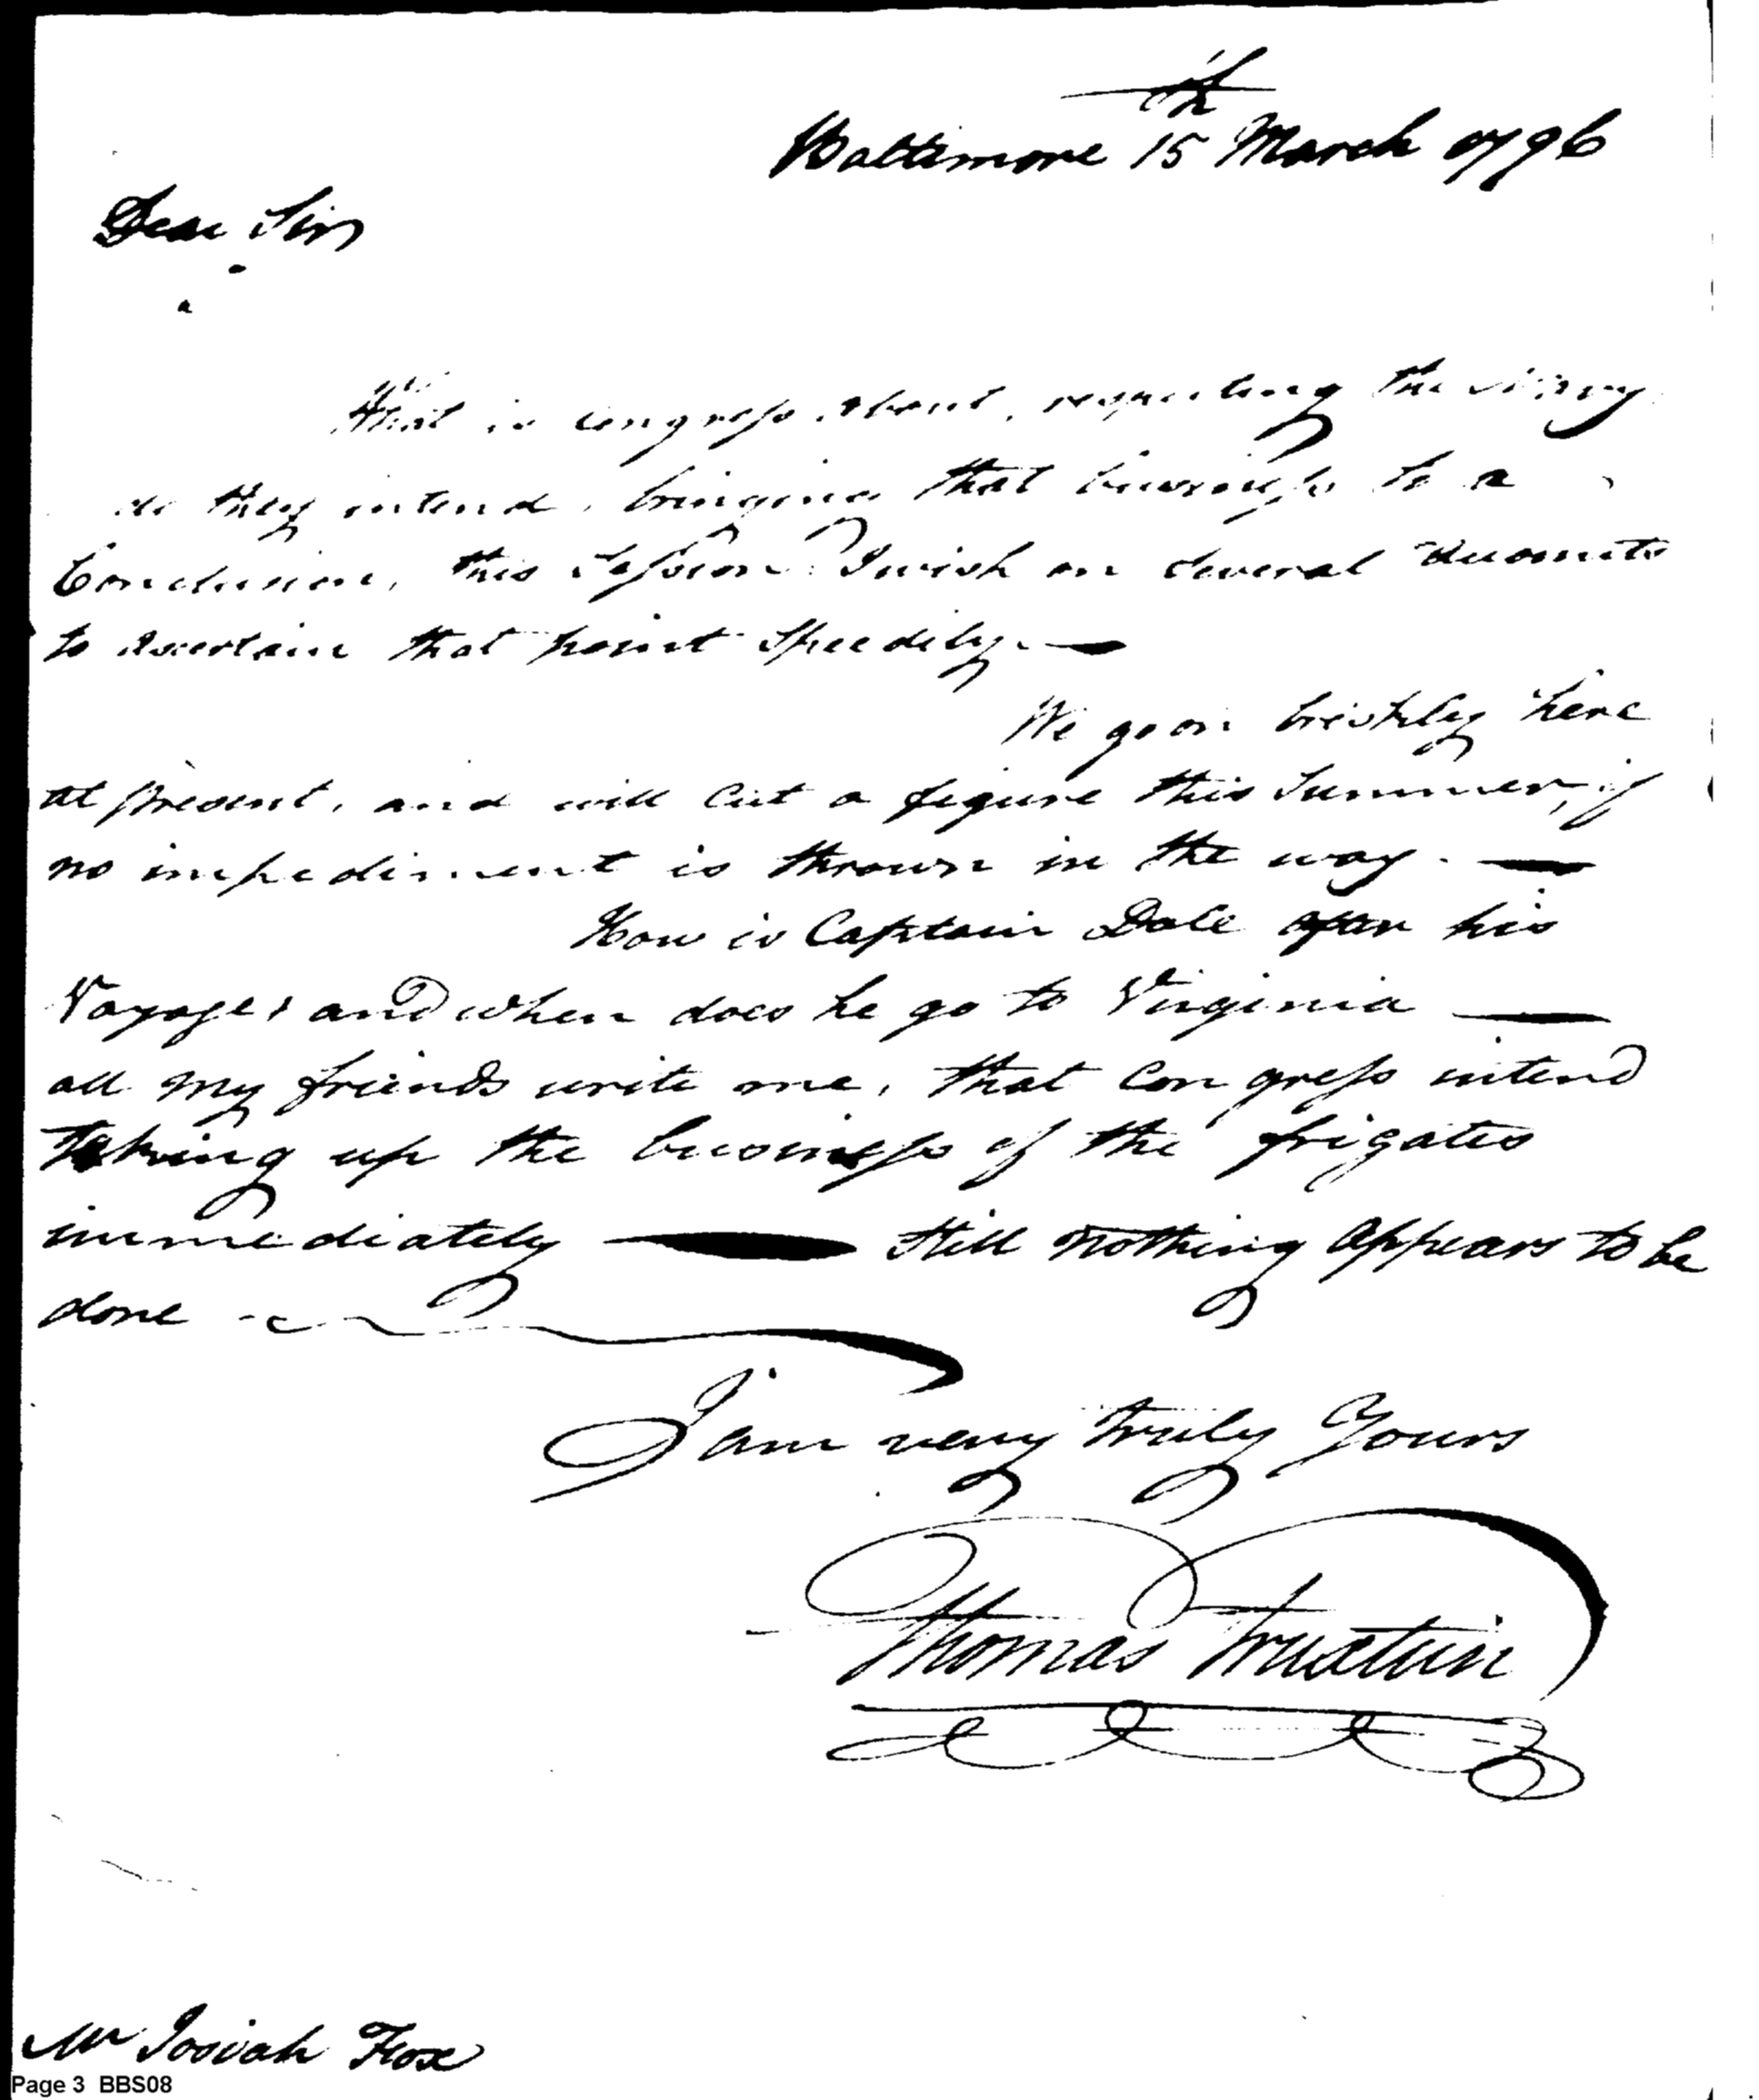 Baltimore 15th March 1796
Dear Sir
What is congress about, respecting the Navy
do they intend, bringing that business to a
Conclusion, this Session. I wish on several accounts
to ascertain that point Speedily. —
We go on briskly here
at present, and will Cut a figure this Summer, if
no impediment is thrown in the way. —
How is Captain Dale after his
Voyage, and when does he go to Virginia —
all my friends write me, that Congress intend
Taking up the business of the frigates
immediately — Still nothing appears to be
done
I am very truly Yours
Thomas Truxtun
Mr Josiah Fox
Page 3 BBS08